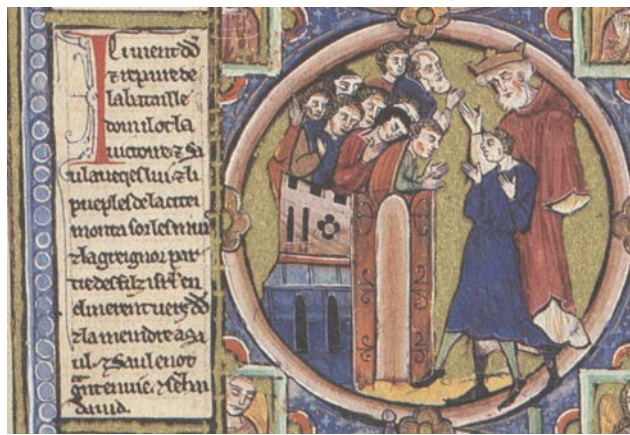 Ici vient dd
⁊ repaire de
la bataille
dont il ot la
victoire ⁊ Sa
ul aveqes lui ⁊ li
pueples de la citei
monta sor les mur
⁊ la greignor par
tie des filz isrl en
clinerent vers dd
⁊ la meindre a Sa
ul ⁊ Saul en ot
grant envuie
david.